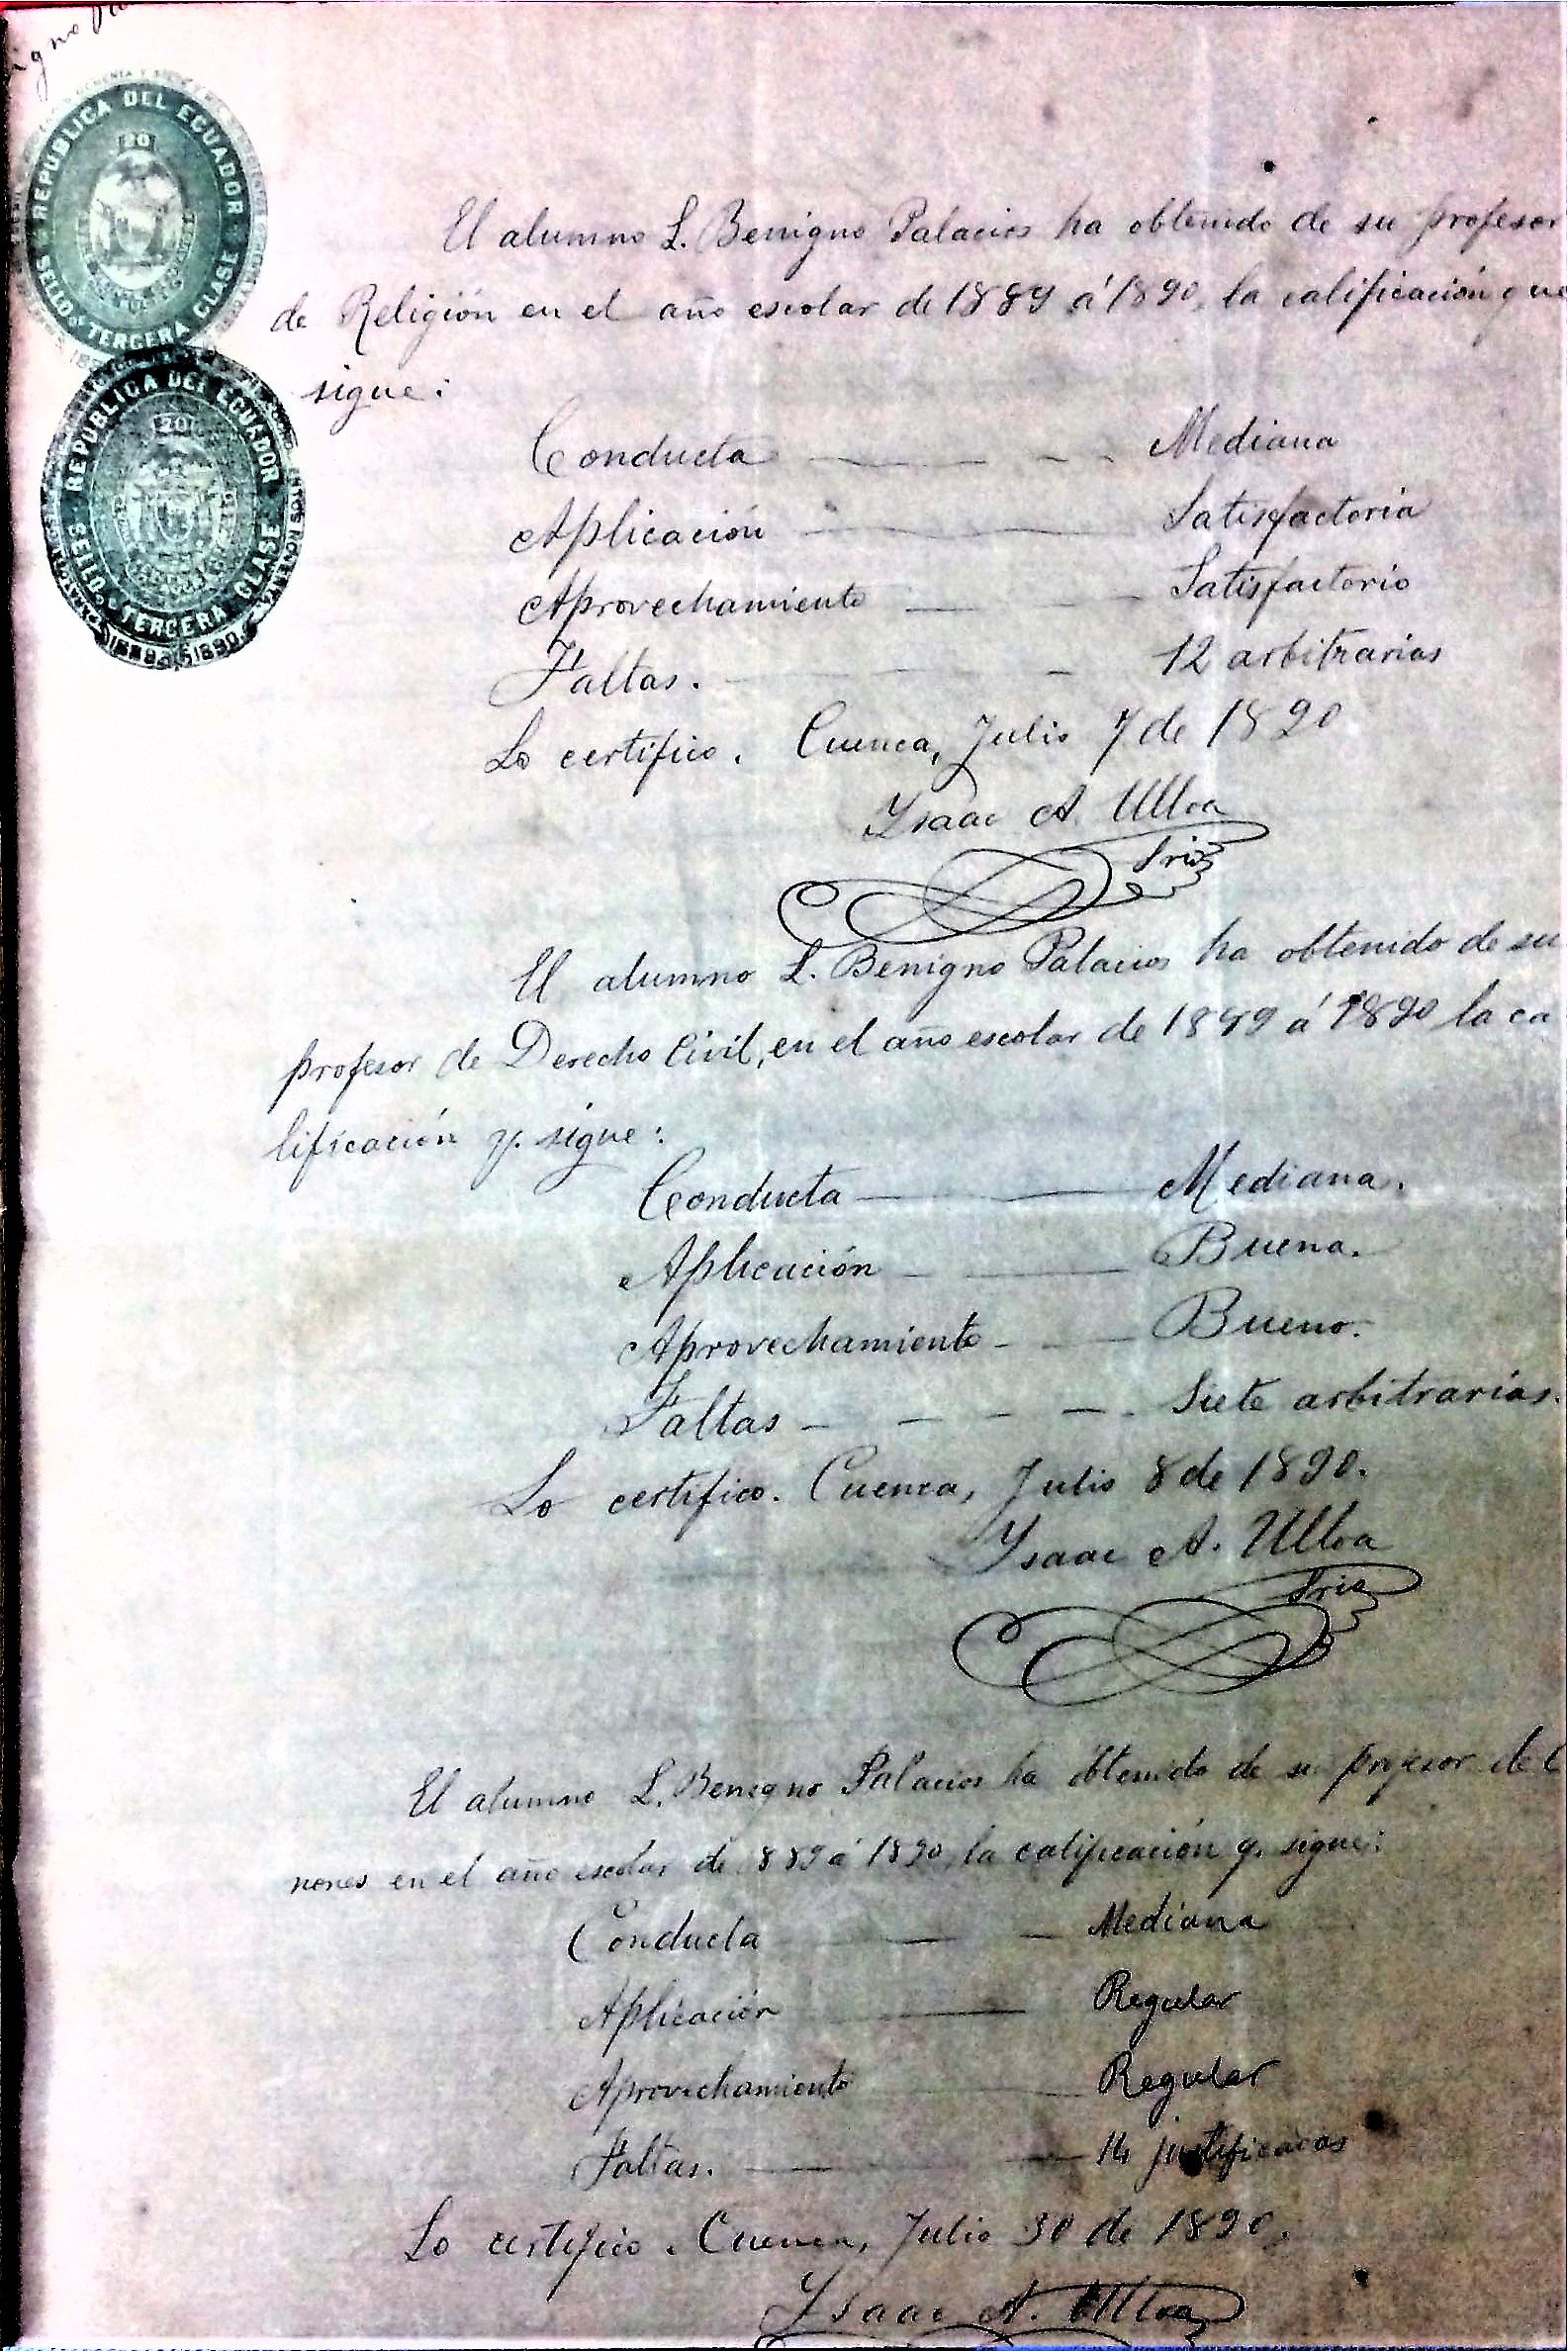 REPUBLICA DEL ECUADOR
20
SELLO TERCERA CLASE
REPUBLICA DEL ECUADOR
20
SELLO TERCERA CLASE
El alumno L. Benigno Palacios ha obtenido de su profesor
de Religión en el año escolar de 1889 á 1890, la calificación que
sigue:
Conducta — — - - Mediana
Aplicación — — Satisfactoria
Aprovechamiento — - — Satisfactorio
Faltas. — - - 12 arbitrarias
Lo certifico. Cuenca, Julio 7 de 1890
Ysaac A. Ulloa
Srio
El alumno L. Benigno Palacios ha obtenido de su
profesor de Derecho Civil, en el año escolar de 1889 á 1890 la ca
lificación q. sigue:
Conducta — — Mediana.
Aplicación — — Buena.
Aprovechamiento - - — Bueno.
Faltas — - - —. Siete arbitrarias.
Lo certifico. Cuenca, Julio 8 de 1890.
Ysaac A. Ulloa
Srio
El alumno L. Benigno Palacios ha obtenido de su profesor de C
nones en el año escolar de 889 á 1890, la calificación q. sigue:
Conducta — — Mediana
Aplicación — Regular
Aprovechamiento — Regular
Faltas. — — 14 justificadas
Lo certifico. Cuenca, Julio 30 de 1890.
Ysaac A. Ulloa